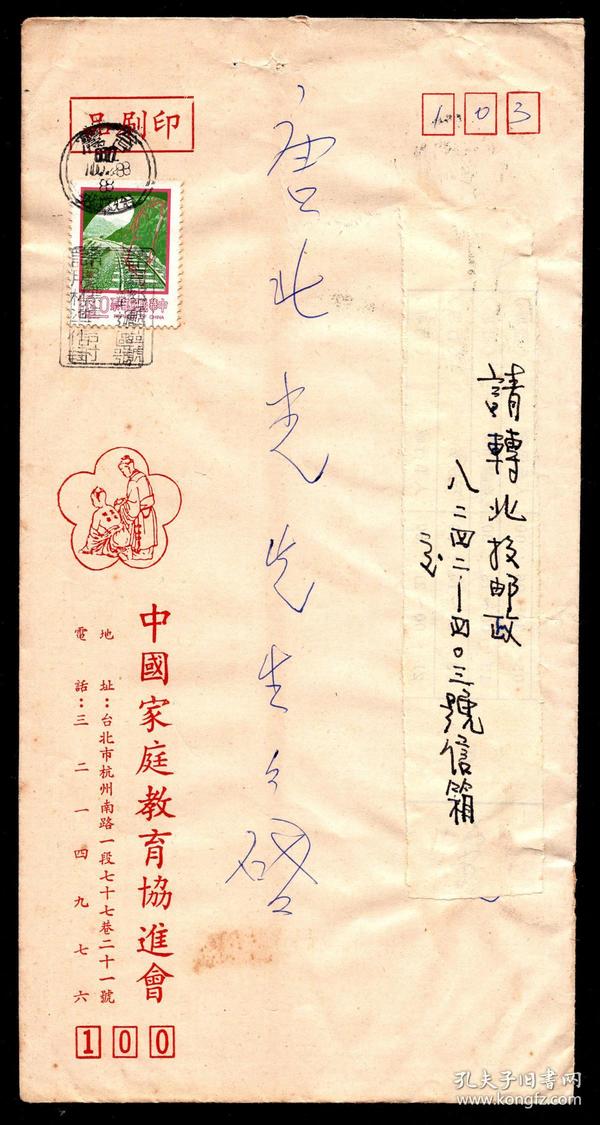 印刷品
103
請轉北投郵政
八二四二-四〇三號信箱
唐北光先生
啓
中國家庭教育協進會
地址：台北市杭州南路一段七十七巷二十一號
電話：三二一四九七六
100
孔夫子旧书网
www.kongfz.com